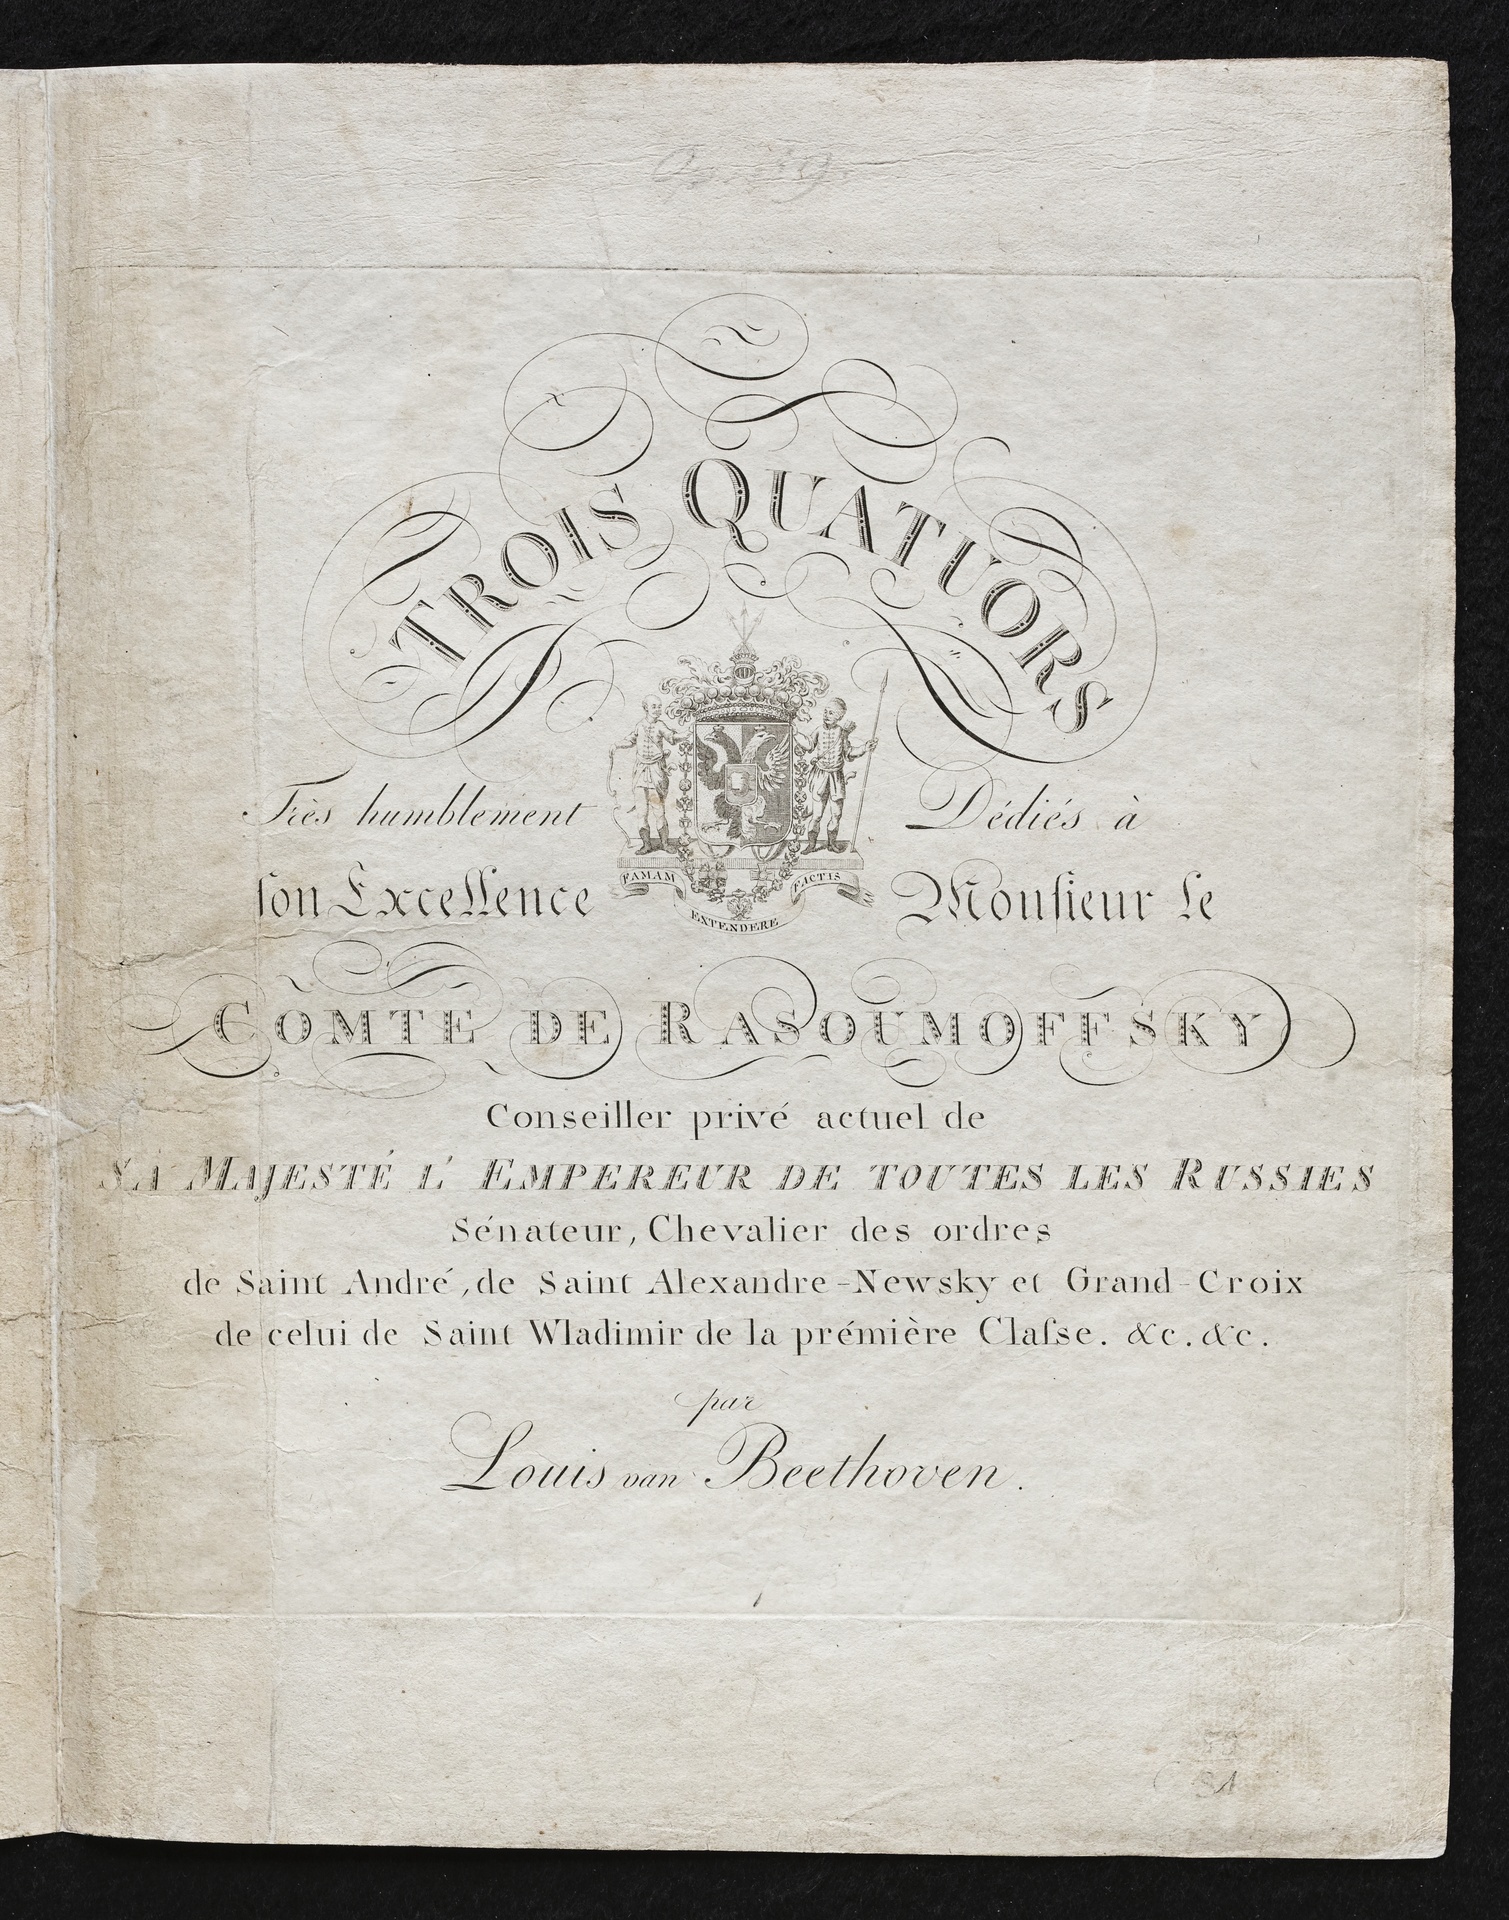 Op. 59.
TROIS QUATUORS
Très humblement Dédiés à
ſon Excellence Monſieur le
FAMAM EXTENDERE FACTIS
COMTE DE RASOUMOFFSKY
Conseiller privé actuel de
SA MAJESTÉ L' EMPEREUR DE TOUTES LES RUSSIES
Sénateur, Chevalier des ordres
de Saint André, de Saint Alexandre-Newsky et Grand-Croix
de celui de Saint Wladimir de la prémière Claſse. &c. &c.
par
Louis van Beethoven.